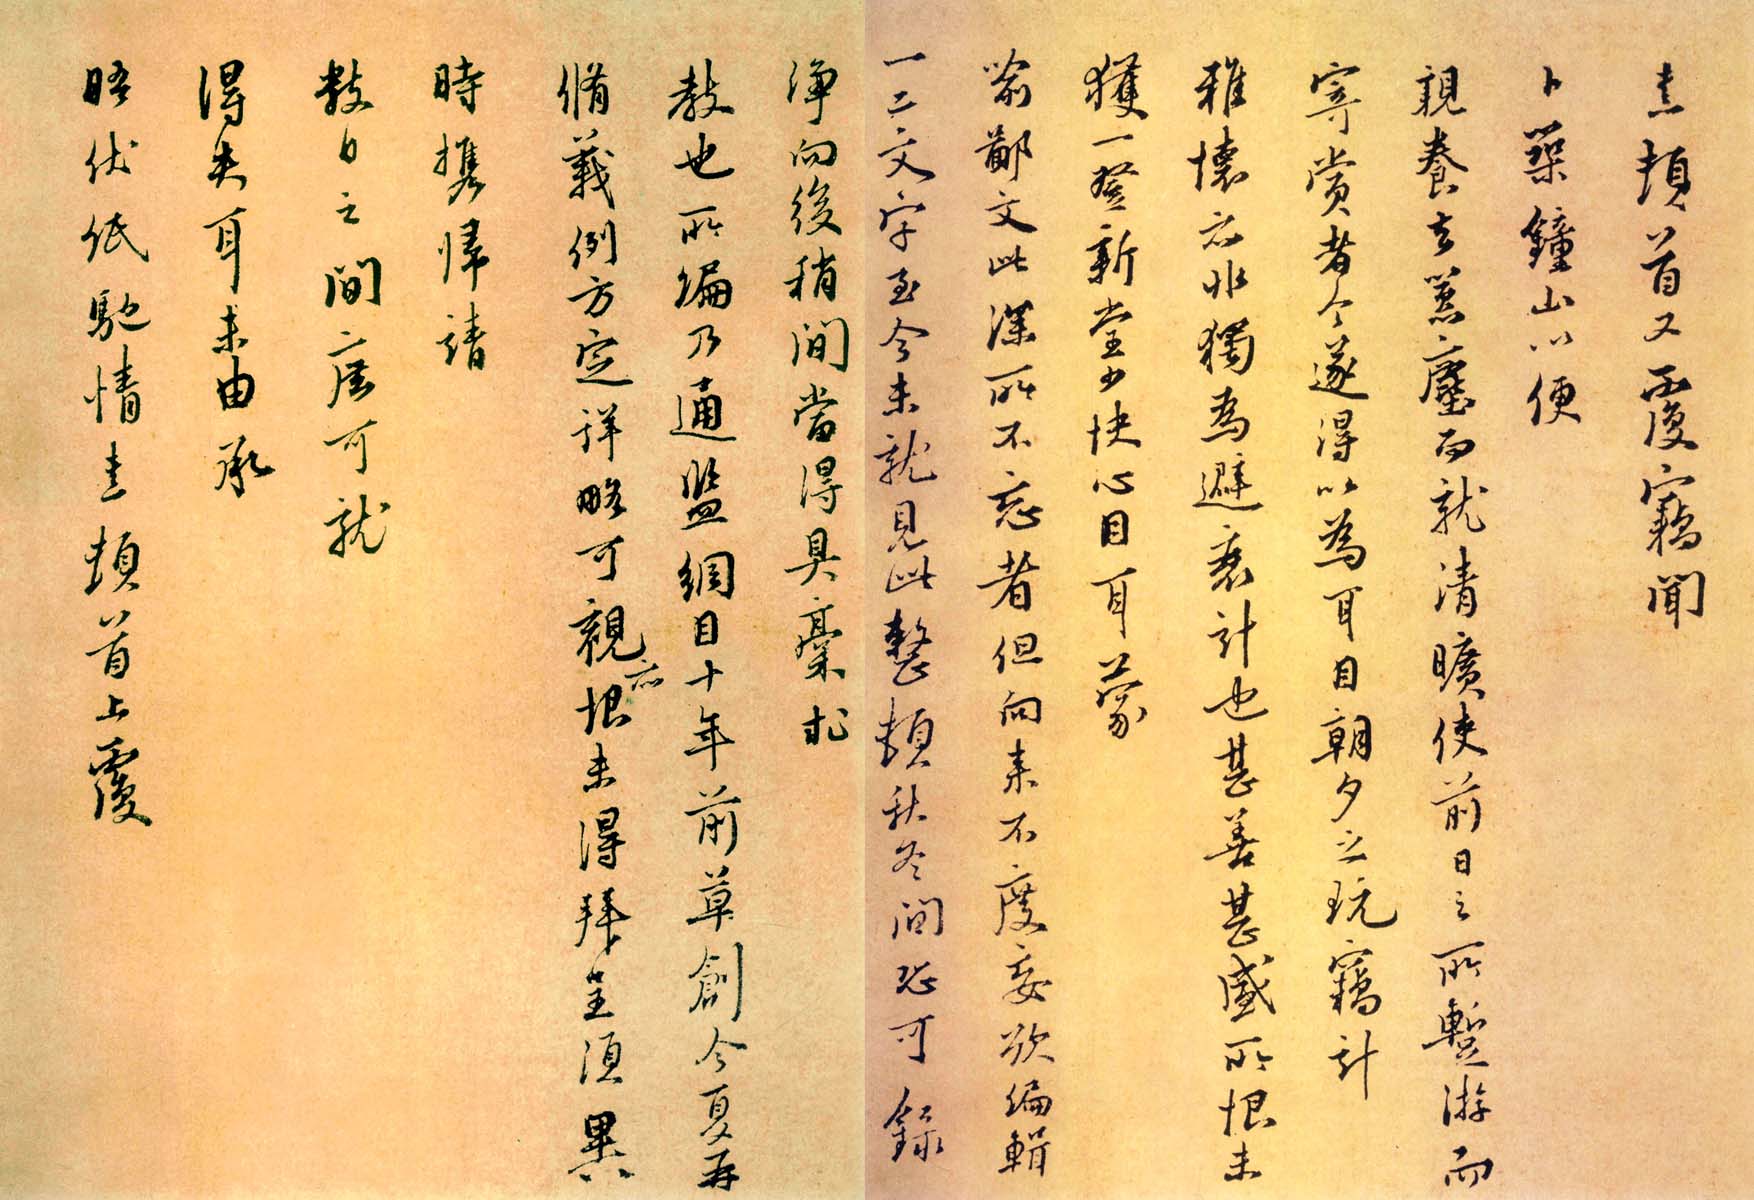 熹頓首又覆竊聞
卜築鐘山以便
親養去囂塵而就清曠使前日之所暫游而
寄賞者今遂得以為耳目朝夕之玩竊計
雅懷亦非獨為避衰計也甚善甚盛所恨未
獲一登新堂少快心目耳蒙
喻鄙文此深所不忘者但向來不度妄欲編輯
一二文字至今未就見此整頓秋冬間恐可錄
淨向後稍間當得具稾求
教也所編乃通鑑綱目十年前草創今夏再
脩義例方定詳略可觀亦恨未得拜呈須異
時攜歸請
教日之間庶可就
得失耳未由承
晤伏紙馳情熹頓首上覆